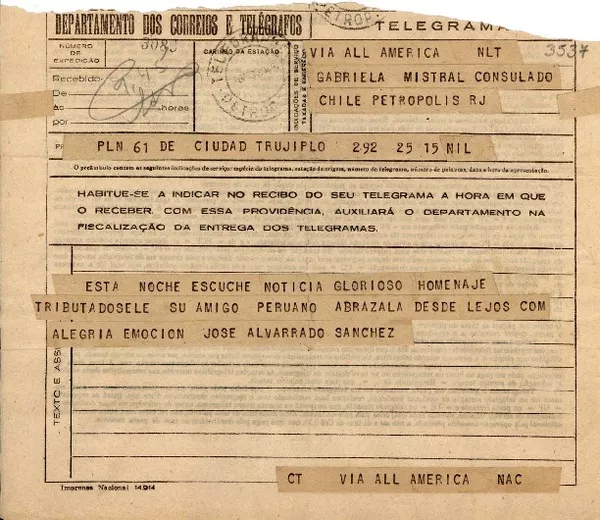 DEPARTAMENTO DOS CORREIOS E TELÉGRAFOS
TELEGRAMA
NÚMERO DE EXPEDIÇÃO
3083
CARIMBO DA ESTAÇÃO
INDICAÇÕES DE SERVIÇO TAXADAS E ENDEREÇO
VIA ALL AMERICA NLT
3537
GABRIELA MISTRAL CONSULADO
CHILE PETROPOLIS RJ
Recebido
De
às horas
por
PLN 61 DE CIUDAD TRUJIPLO 292 25 15 NIL
O preâmbulo contem as seguintes indicações de serviço: espécie do telegrama, estação de origem, número do telegrama, número de palavras, data e hora da apresentação.
HABITUE-SE A INDICAR NO RECIBO DO SEU TELEGRAMA A HORA EM QUE
O RECEBER. COM ESSA PROVIDÊNCIA, AUXILIARÁ O DEPARTAMENTO NA
FISCALIZAÇÃO DA ENTREGA DOS TELEGRAMAS.
ESTA NOCHE ESCUCHE NOTICIA GLORIOSO HOMENAJE
TRIBUTADOSELE SU AMIGO PERUANO ABRAZALA DESDE LEJOS COM
ALEGRIA EMOCION JOSE ALVARRADO SANCHEZ
TEXTO E ASS
CT VIA ALL AMERICA NAC
Imprensa Nacional 14.914